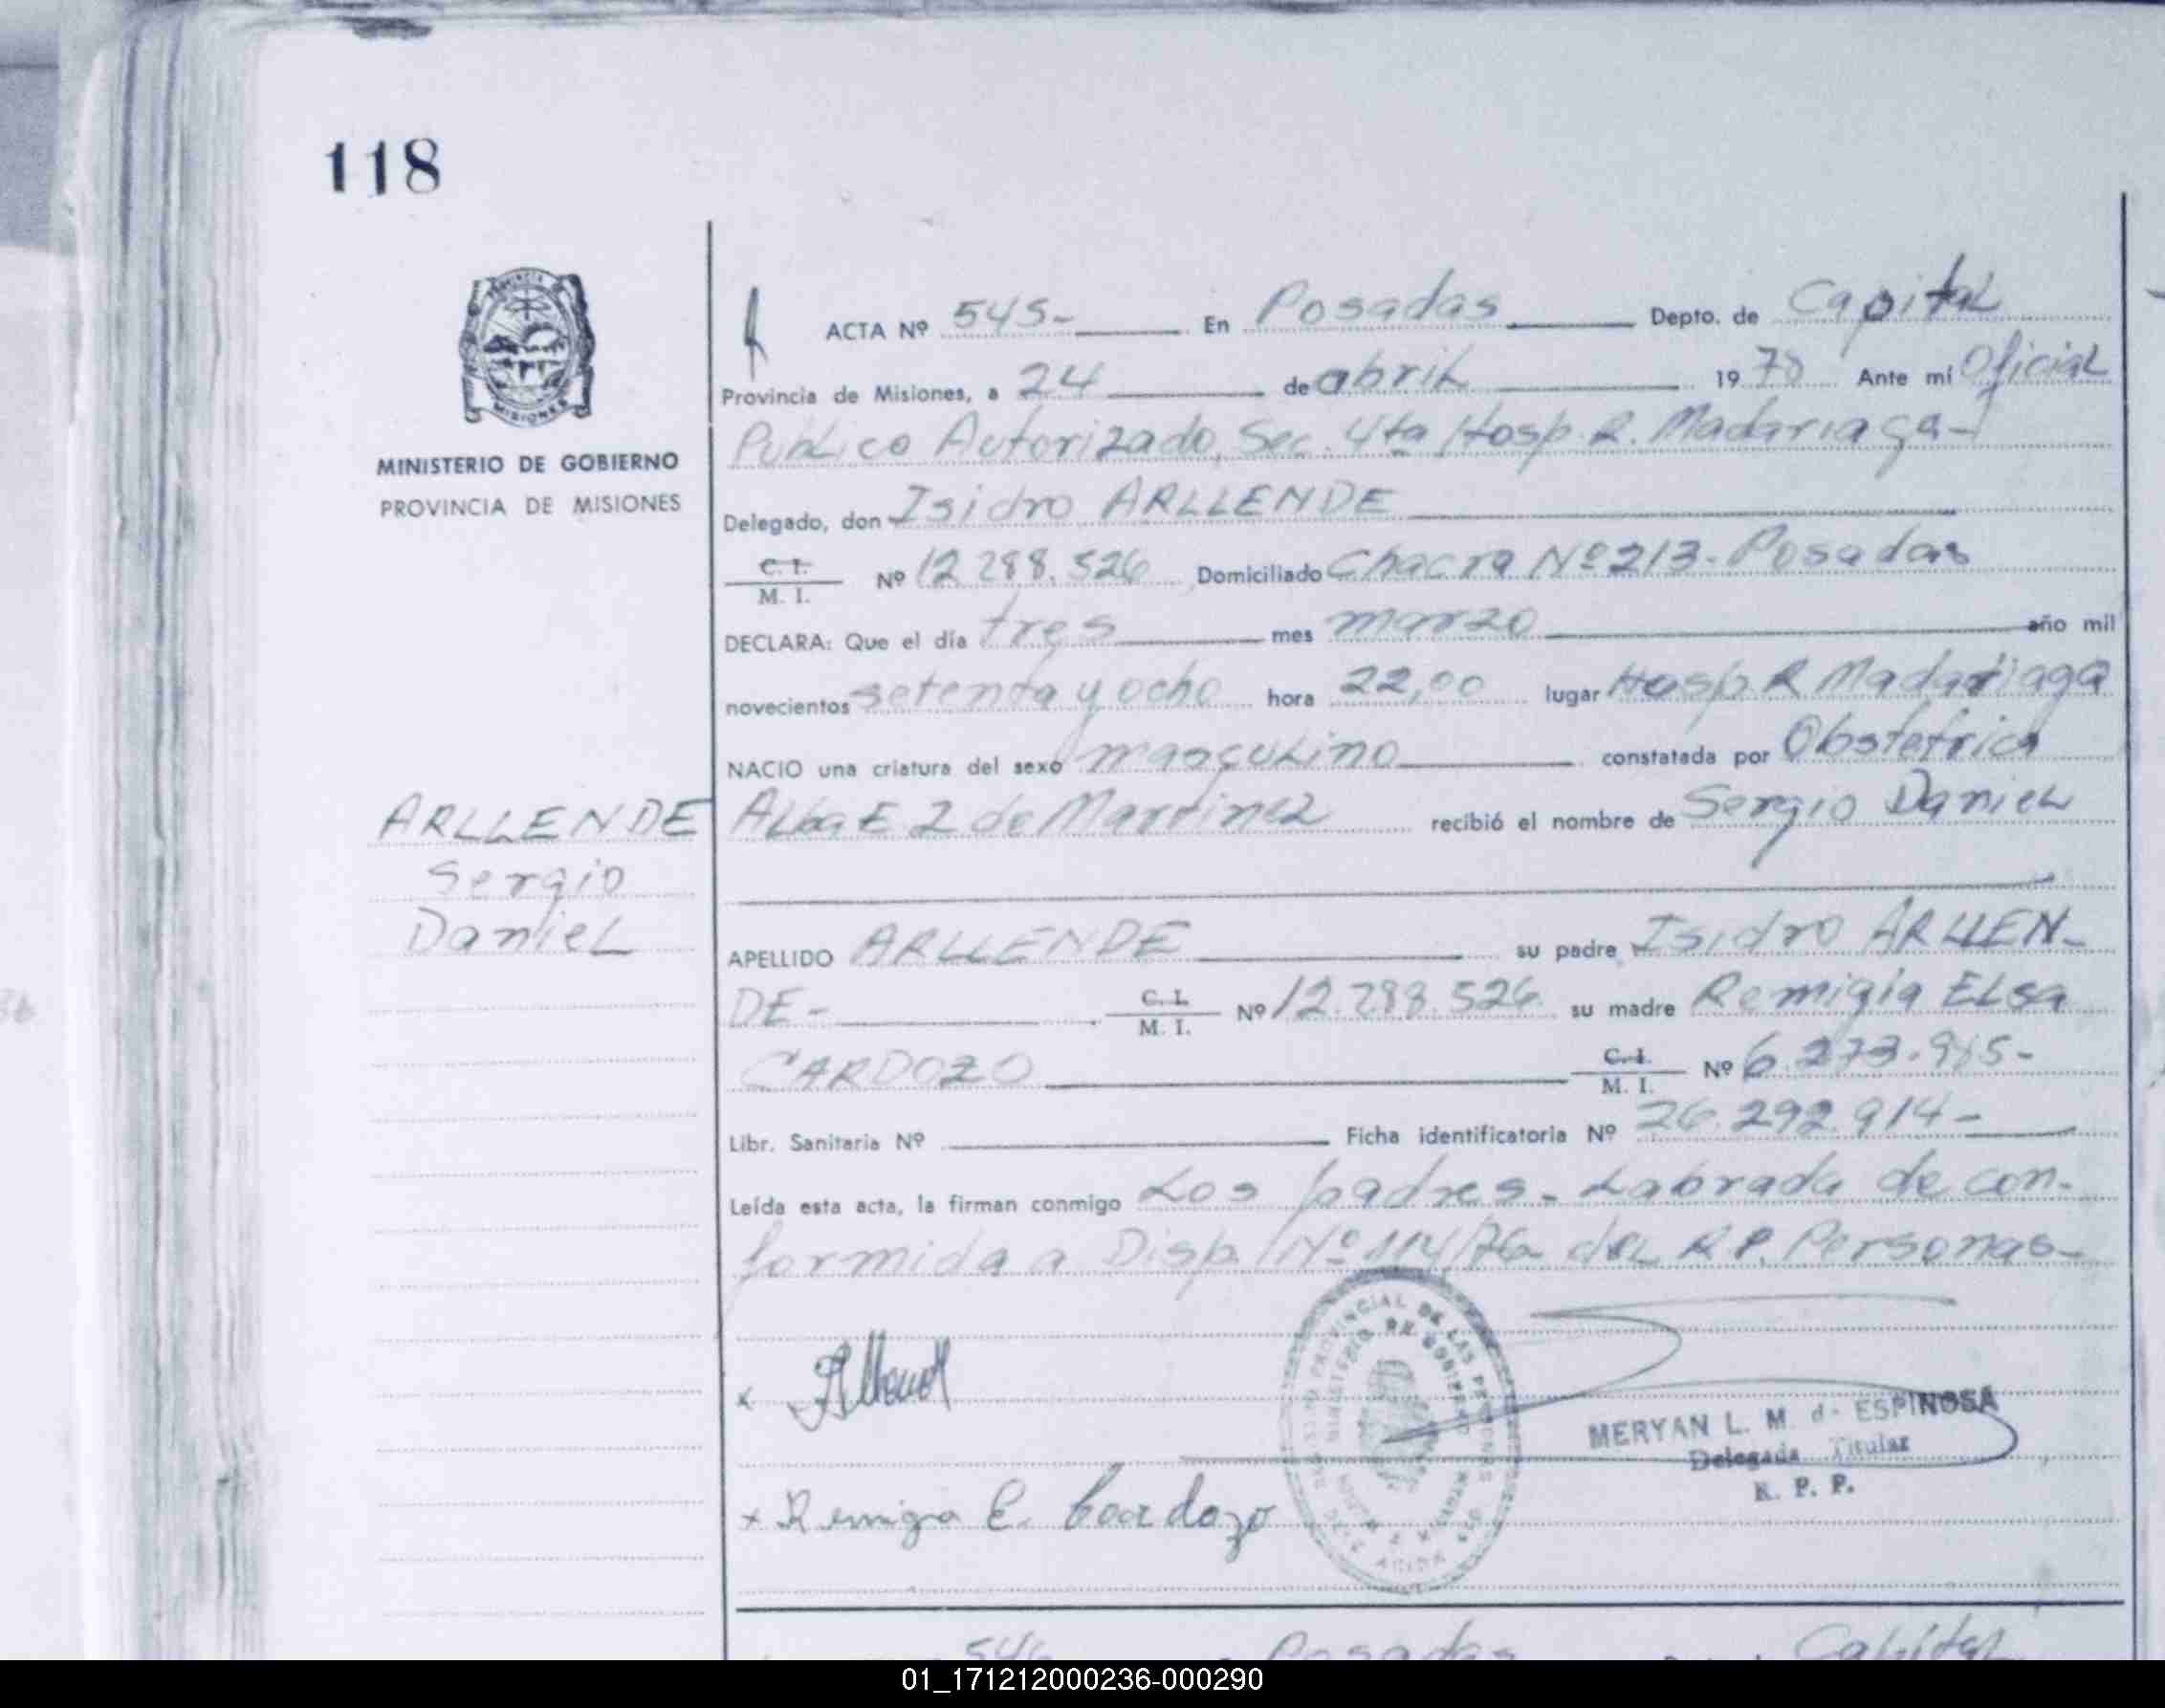 118
MINISTERIO DE GOBIERNO
PROVINCIA DE MISIONES
ARLLENDE
Sergio
Daniel
ACTA Nº 545- En Posadas Depto. de Capital
Provincia de Misiones, a 24 de abril 1978 Ante mí Oficial
Publico Autorizado, Sec. 4ta Hosp. R. Madariaga-
Delegado, don Isidro ARLLENDE
C. I. / M. I. Nº 12.288.526 Domiciliado Chacra Nº 213- Posadas
DECLARA: Que el día tres mes marzo año mil
novecientos setenta y ocho hora 22,00 lugar Hosp. R Madariaga
NACIO una criatura del sexo masculino constatada por Obstetrica
Alba E Z de Martinez recibió el nombre de Sergio Daniel
APELLIDO ARLLENDE su padre Isidro ARLLEN-
DE- C. I. / M. I. Nº 12.288.526 su madre Remigia Elsa
CARDOZO C. I. / M. I. Nº 6.273.985-
Libr. Sanitaria Nº Ficha identificatoria Nº 26.292.914-
Leída esta acta, la firman conmigo Los padres- Labrada de con-
formida a Disp. Nº 114/76 del R P. Personas-
x
x Remigia E. Cardozo
MERYAN L. M. de ESPINOSA
Delegada Titular
R. P. P.
546 Posadas Capital
01_171212000236-000290